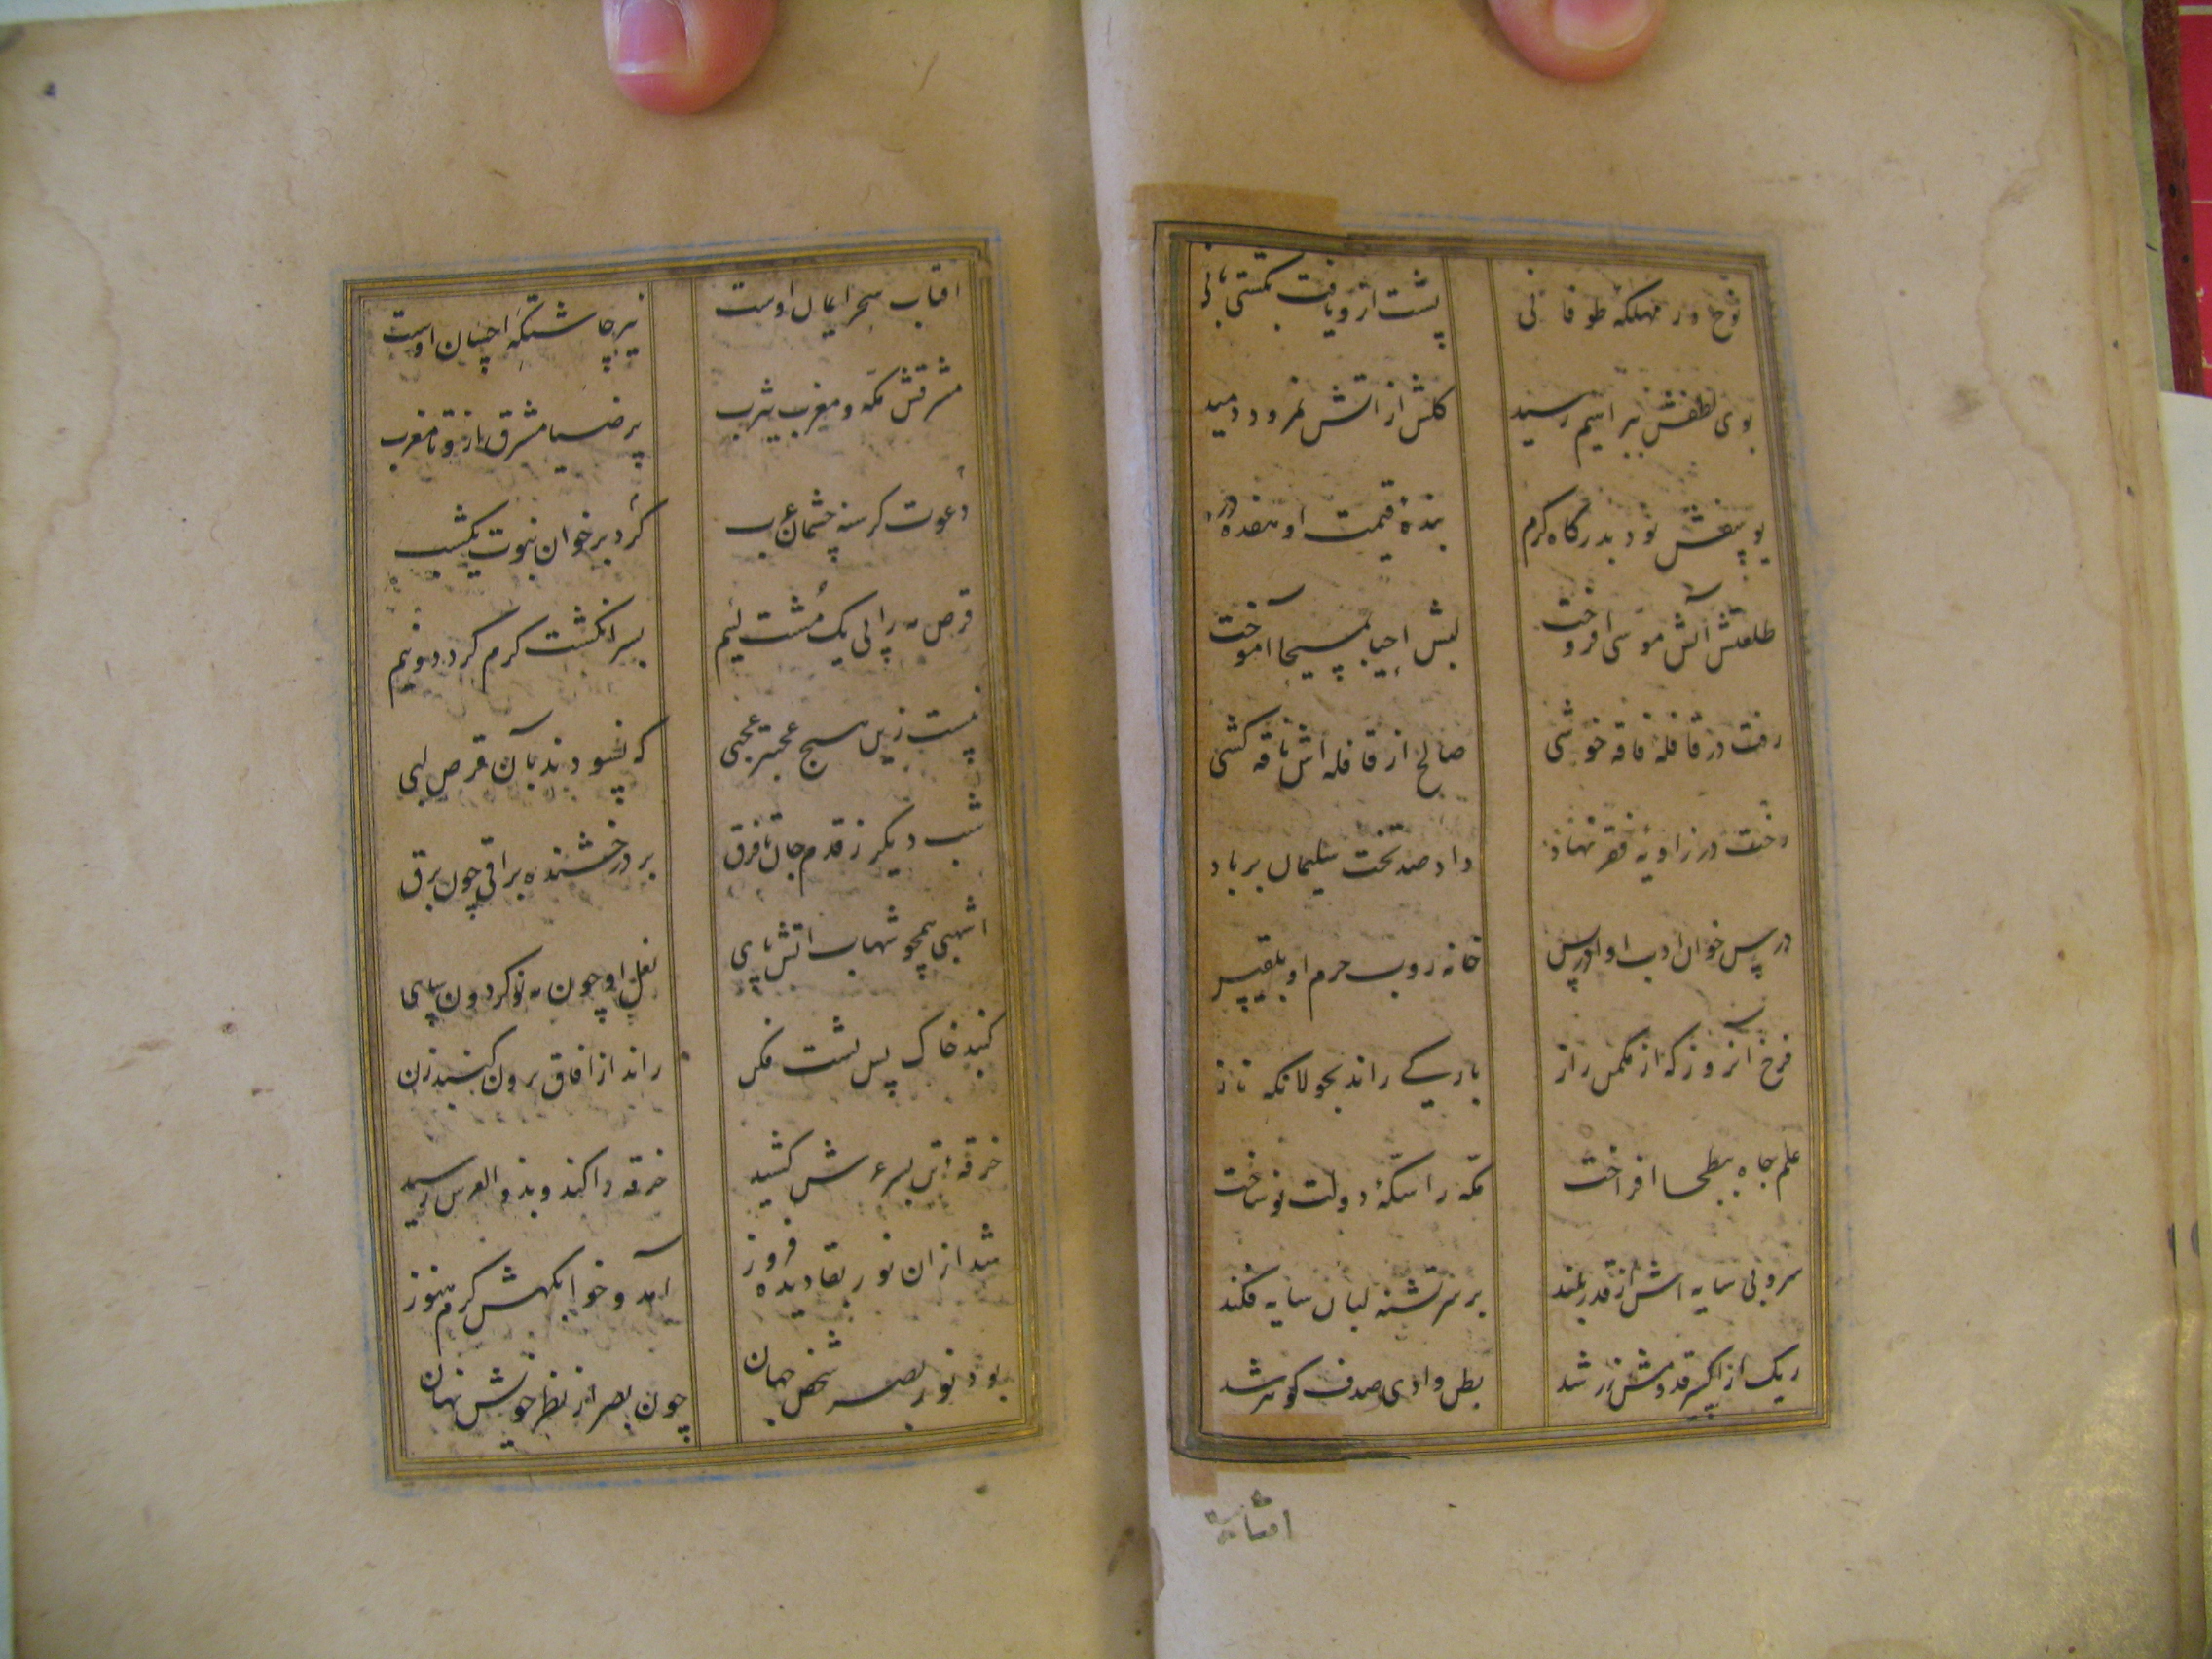 نوح در مهلکهٔ طوفانی پشت ازو یافت بکشتی بانی
بوی لطفش ببراهیم رسید گلش از آتش نمرود دمید
یوسفش بود بدرگاه کرم بندهٔ قیمت او هفده درم
طلعتش آتش موسی افروخت لبش احیا بمسیحا آموخت
رفت در قافله فاقه خوشی صالح از قافله اش ناقه کشی
رخت در زاویهٔ فقر نهاد داد صد تخت سلیمان بر باد
درس خوان ادب او ادریس خانه روب حرم او بلقیس
فرخ آنروز که از مکمن راز بارگی راند بجولانگه ناز
علم جاه ببطحا افراخت مکه را سکهٔ دولت نو ساخت
سرو بی سایه اش از قدر بلند بر سر تشنه لبان سایه فکند
ریک از اکسیر قدومش زر شد بطن وادی صدف گوهر شد
افتاب
افتاب سحر ایمان اوست نیر چاشتگه احسان اوست
مشرقش مکه و مغرب یثرب پر ضیا مشرق ازو تا مغرب
دعوت گرسنه چشمان عرب کرد بر خوان نبوت یکشب
قرص مه را پی یک مشت لئیم بسر انگشت کرم کرد دو نیم
نیست زین هیچ عجبتر عجبی که نسودند بآن قرص لبی
شب دیگر ز قدم جان تا فرق بر درخشنده براقی چون برق
اشهبی همچو شهاب اتش پای نعل او چون مه نو گردون سای
گنبد خاک پس پشت فکن راند از افاق برون گنبد زن
خرقه اش بسر عرش کشید خرقه را کند و بذو العرش رسید
شد ازان نور بقا دیده فروز آمد و خوابگهش گرم هنوز
بود نور بصر شخص جهان چون بصر از نظر خویش نهان